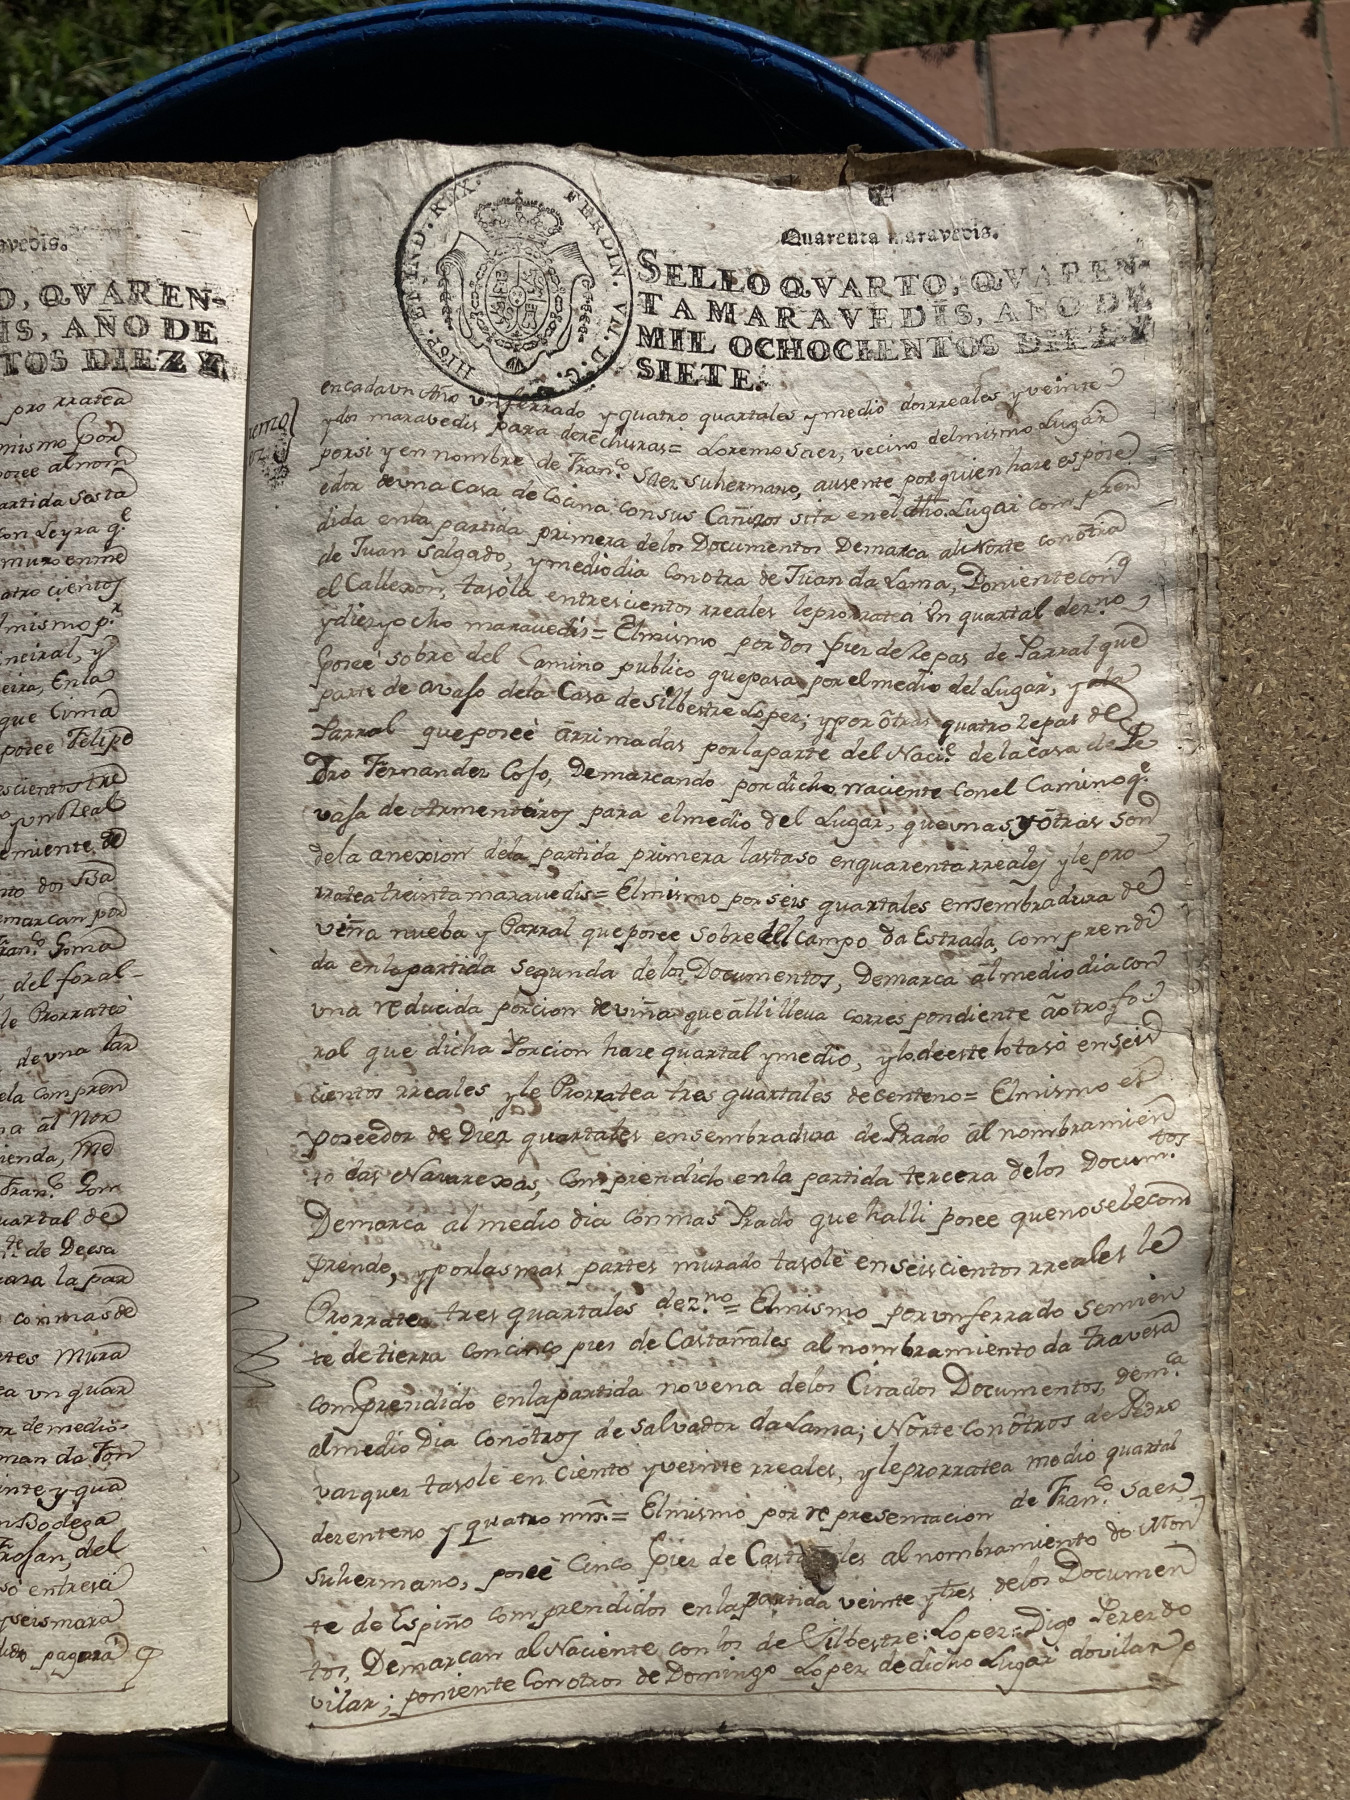 avedis.
O, QVAREN-
IS, AÑO DE
TOS DIEZ Y
pro rratea
mismo por
posee al nom
artida sesta
con Leyra q.e
muro en me
atro cientos
lmismo p.r
neiral, y
eira, Enla
que Coma
posee Felipe
scientos tre
y un Real
emiente, de
nto dos Ba
marcan por
Fran.co Goma
del foral-
le Prorrateo
de vna lar
ela compren
na al Nor
ienda, Me
Fran.co Gom
uartal de
de Deesa
para la par
con mas de
rtes Mura
ea vn quar
or de medio
man da Fon
inte y qua
n Bodega
Trosan, del
só entresci
y seis mara
pagará
HISP. ET IND. REX. FERDIN. VII. D. G.
Quarenta maravedis.
SELLO QVARTO, QVAREN-
TA MARAVEDIS, AÑO DE
MIL OCHOCIENTOS DIEZ Y
SIETE.
en cada vn Año vn ferrado y quatro quartales y medio dos rreales y veinte
y dos maravedis para derechuras = Lorenzo Saez, vecino del mismo Lugar
por si y en nombre de Fran.co Saez su hermano, ausente por quien hace es pose
edor de vna Casa de Cocina con sus Cañizos sita en el dho. Lugar compren
dida enla partida primera delos Documentos Demarca al Norte con otra
de Juan Salgado, y mediodia con otra de Juan da Lama, Poniente con
el Callexon, tasóla entrescientos rreales le prorratea Un quartal dez.no
y diez y ocho maravedis = Elmismo por dos pies de Zepas de Parral que
posee sobre del Camino publico que pasa por el medio del Lugar, y ala
parte de avajo dela Casa de Silbestre Lopez; y por otras quatro Zepas de
Parral que posee arrimadas por la parte del Naci.te de la casa de Pe
dro Fernandez Coso, Demarcando por dicho naciente con el Camino q.e
vasa de Armenteiros para elmedio del Lugar, que vnas y otras son
dela anexion dela partida primera las taso en quarenta rreales y le pro
rratea treinta maravedis = Elmismo por seis quartales ensembradura de
viña nueba y Parral que posee sobre del Campo da Estrada, comprendi
da enla partida segunda de los Documentos, Demarca al medio dia con
vna reducida porcion de viña que alli lleva correspondiente a otro fo
ral que dicha Porcion hace quartal y medio, y lo de este lo tasó en seis
cientos rreales y le Prorratea tres quartales de centeno = Elmismo es
poseedor de Diez quartales ensembradura de Prado al nombramien
to das Navarexas, comprendido enla partida tercera delos Docum.tos
Demarca al medio dia con mas Prado que halli posee que no se le com
prende, y por las mas partes murado tasolé en seiscientos rreales le
Prorratea tres quartales dez.no = Elmismo por vn ferrado semien
te de tierra con cinco pies de Castañales al nombramiento da travesa
comprendido enla partida novena delos Citados Documentos, dem.ca
al medio Dia con otros de Salvador da Lama; Norte con otros de Pedro
vazquez tasolé en Ciento y veinte rreales, y le prorratea medio quartal
dezenteno y quatro mrs. = Elmismo por representacion de Fran.co Saez
su hermano, posee Cinco pies de Castañales al nombramiento do Mon
te de Espiño comprendidos enla partida veinte y tres delos Documen
tos, Demarcan al Naciente con los de Silbestre Lopez = Digo Perez do
vilar; poniente con otros de Domingo Lopez de dicho Lugar do vilar